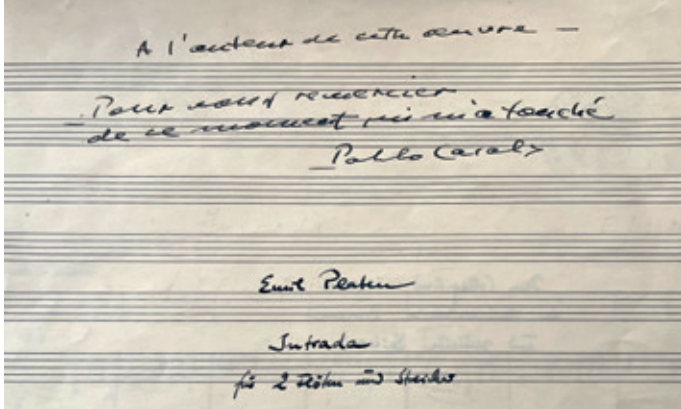 A l'auteur de cette œuvre —
Pour vous remercier
de ce moment qui m'a touché
Pablo Casals
Emil Platen
Intrada
für 2 Flöten und Streicher